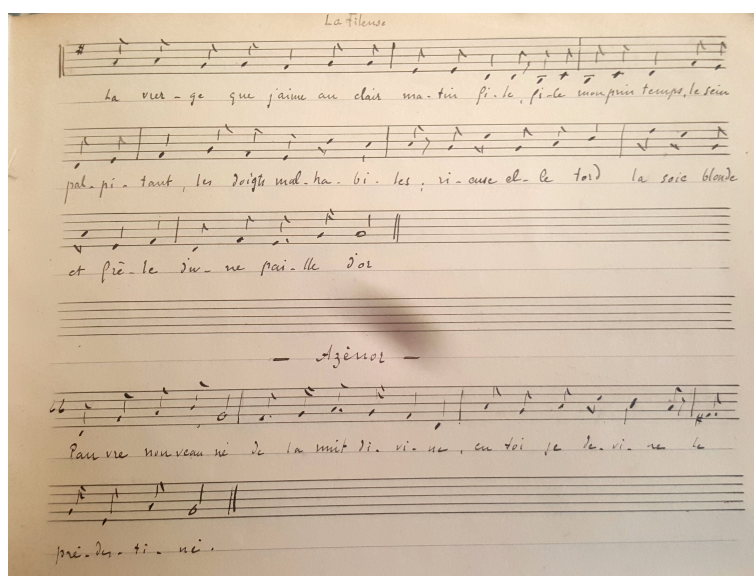 La Fileuse
La vier-ge que j'aime au clair ma-tin fi-le, fi-le mon prin temps, le sein
pal-pi-tant, les doigts mal-ha-bi-les; ri-euse el-le tord la soie blonde
et frê-le d'u-ne pai-lle d'or
- Azénor -
Pau vre nouveau né de la nuit di-vi-ne, en toi je de-vi-ne le
pré-des-ti-né.